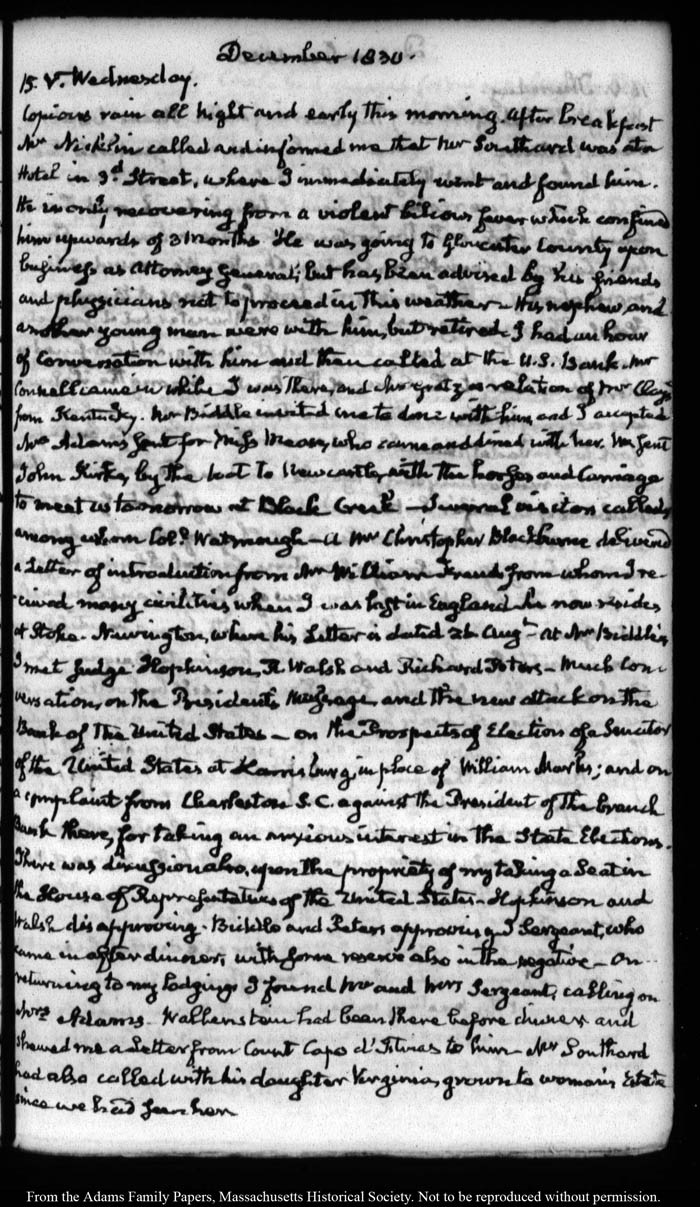 December 1830.
15. V. Wednesday.
Copious rain all night and early this morning. After breakfast
Mr Nicklin called and informed me that Mr Southard was at a
Hotel in 3.d Street, where I immediately went and found him.
He is only recovering from a violent bilious fever which confined
him upwards of 3 Months He was going to Gloucester County upon
business as Attorney General; but has been advised by his friends
and physicians not to proceed in this weather— His nephew, and
another young man were with him, but retired— I had an hour
of conversation with him and then called at the U.S. Bank. Mr
Connell came in while I was there, and Mr Gratz a relation of Mr Clay's
from Kentucky. Mr Biddle invited me to dine with him, and I accepted
Mrs Adams sent for Miss Mease, who came and dined with her. We sent
John Kirke, by the boat to Newcastle, with the horses and Carriage
to meet us tomorrow at Black Creek— Several visitors called,
among whom Col.l Watmough— A Mr Christopher Blackburne delivered
a Letter of introduction from Mr William Freud, from whom I re-
-ceived many civilities when I was last in England he now resides
at Stoke-Newington, where his Letter is dated 26 Aug.t— At Mr Biddle's
I met Judge Hopkinson, R. Walsh and Richard Peters— Much con-
versation, on the President's Message, and the new attack on the
Bank of the United States— on the Prospects of Election of a Senator
of the United States at Harrisburg, in place of William Marks; and on
a complaint from Charleston S.C. against the President of the branch
Bank there, for taking an anxious interest in the State Elections.
There was discussion also, upon the propriety of my taking a Seat in
the House of Representatives of the United States— Hopkinson and
Walsh disapproving. Biddle and Peters approving J Sergeant, who
came in after dinner, with some reserve also in the negative— On
returning to my lodgings I found Mr and Mrs Sergeant, calling on
Mrs Adams. Wallenstein had been there before dinner and
shewed me a Letter from Count Capo d'Istrias to him— Mr Southard
had also called with his daughter Virginia, grown to woman's Estate
since we had seen her
From the Adams Family Papers, Massachusetts Historical Society. Not to be reproduced without permission.